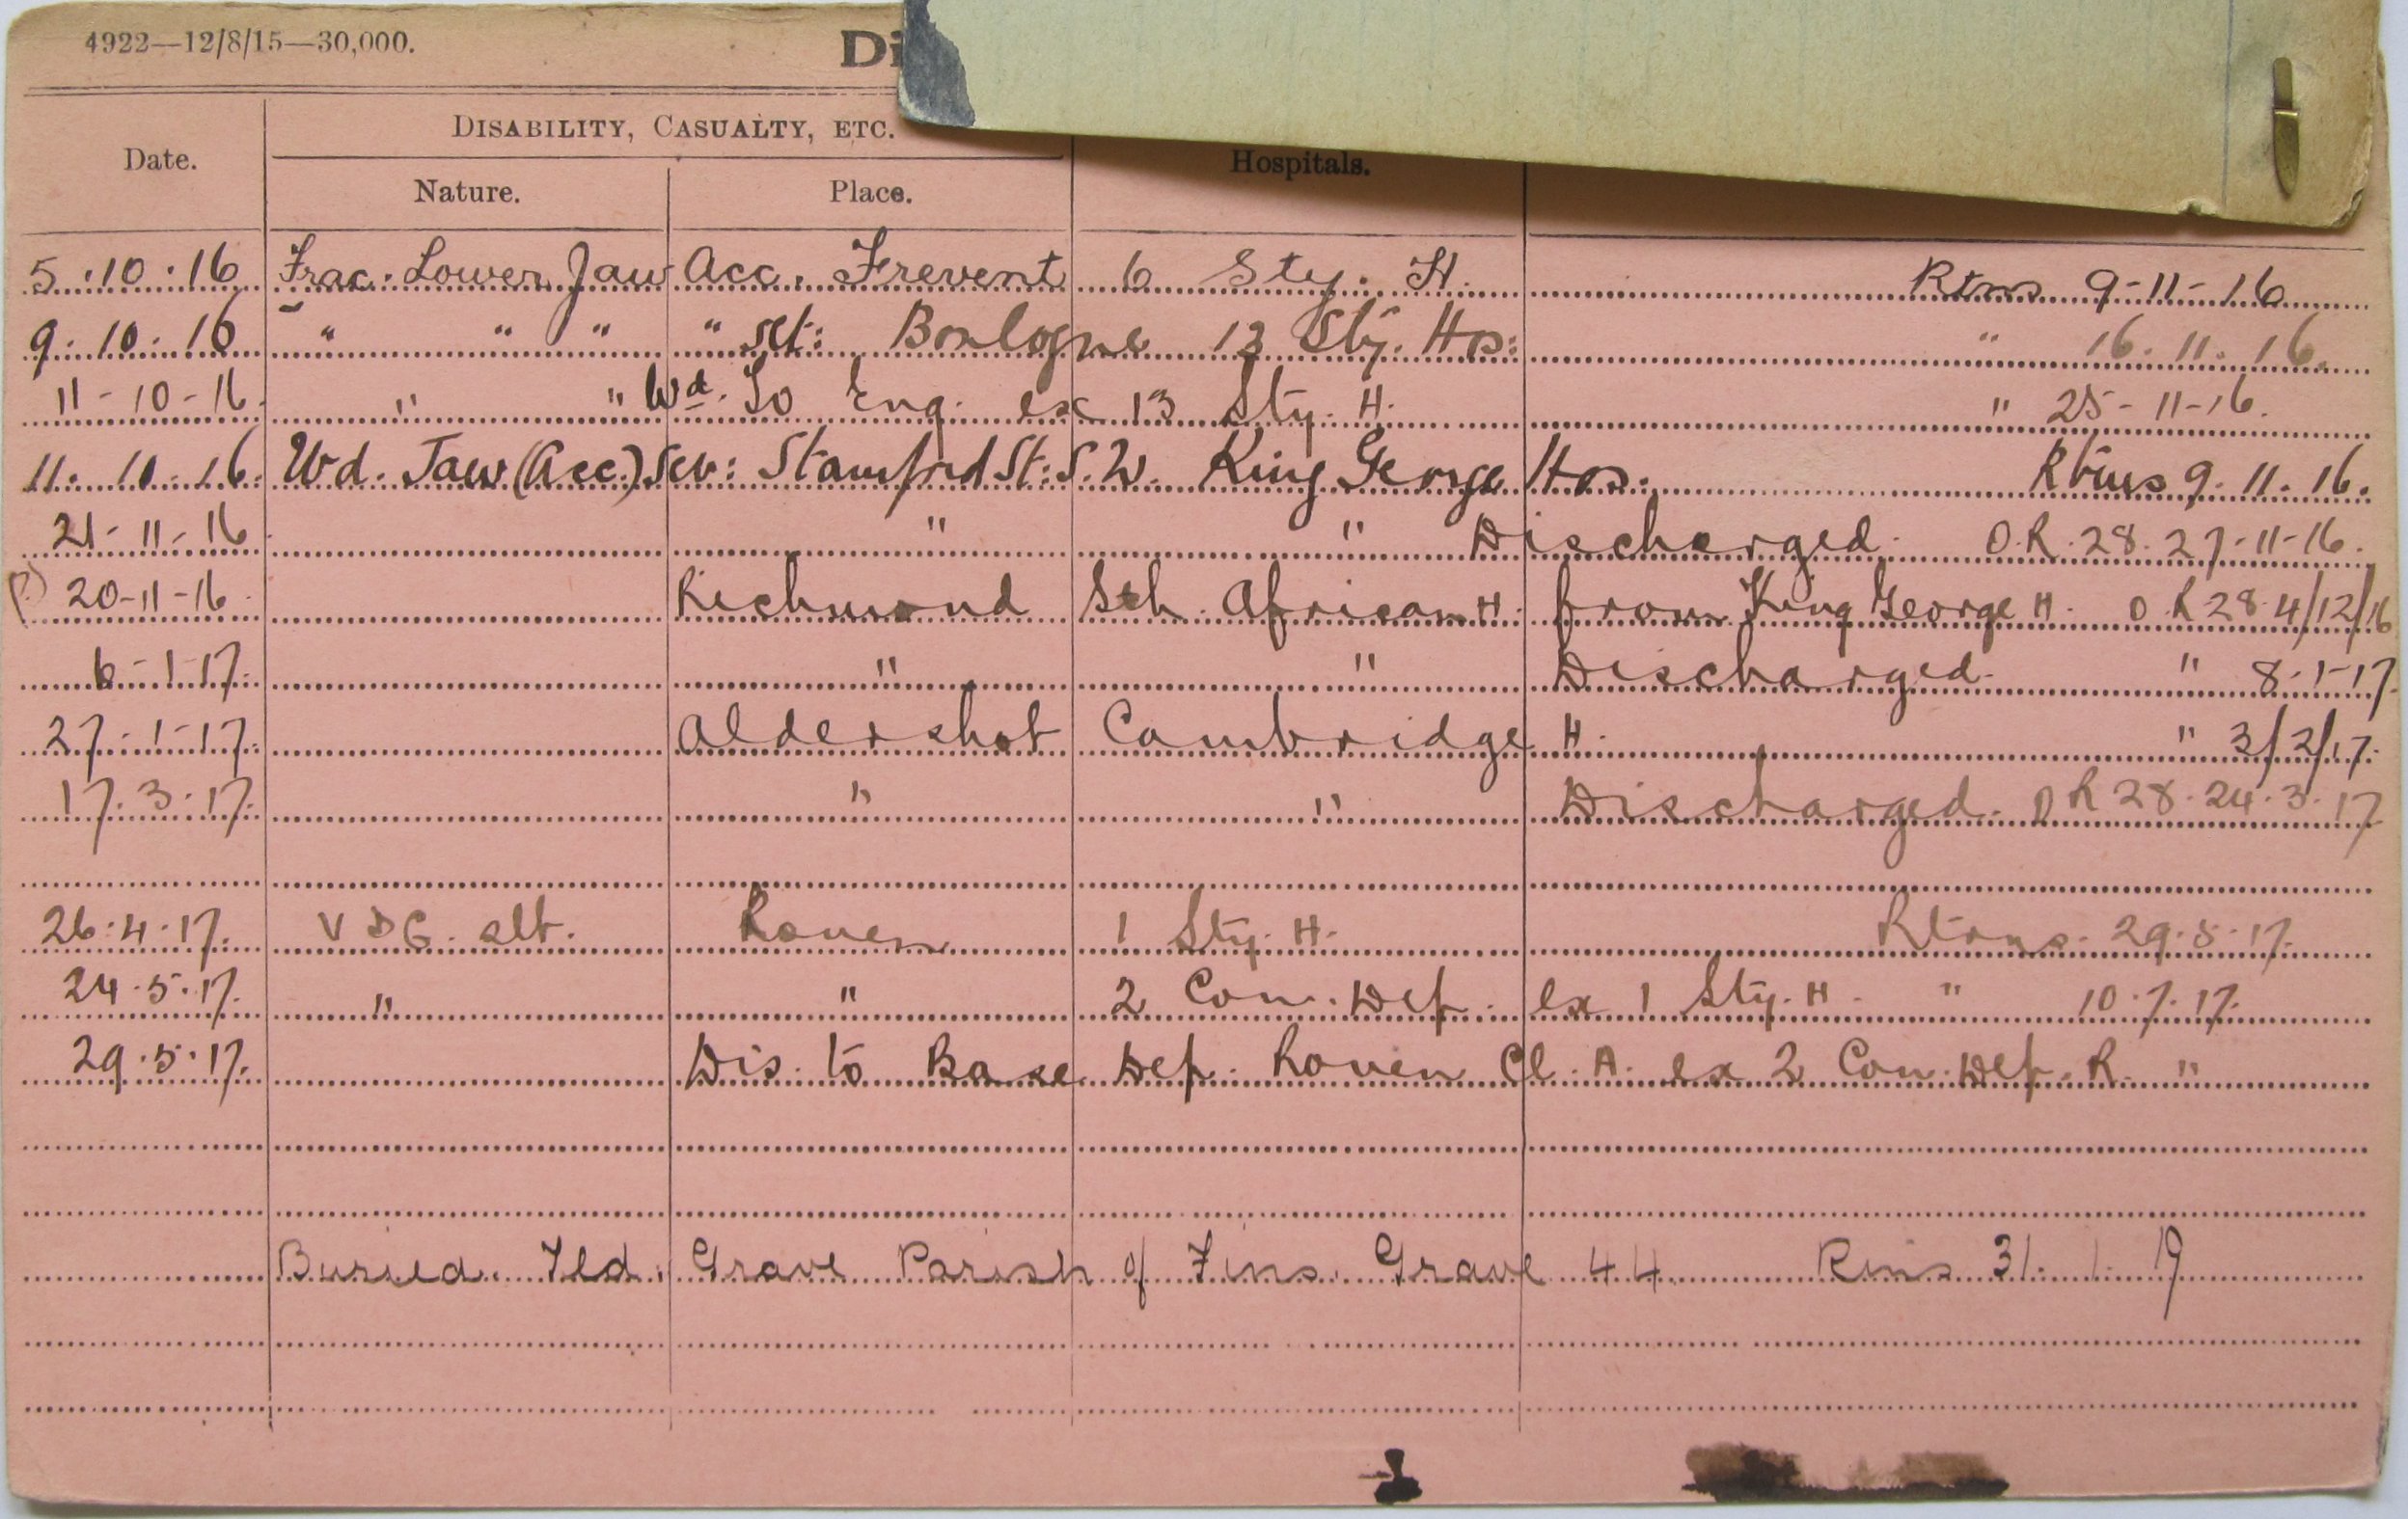 4922—12/8/15—30,000.
Di
DISABILITY, CASUALTY, ETC.
Date.
Hospitals.
Nature. Place.
5.10.16 Frac. Lower Jaw Acc. Frevent 6 Sty. H. Rtns 9-11-16
9.10.16 " " " " Boulogne 13 Sty. Hos: " 16.11.16.
11-10-16 " " Wd. To Eng. ex 13 Sty. H. " 25-11-16.
11.10.16. Wd. Jaw (Acc.) Sev: Stamford St: S.W. King George Hos. Rtns 9.11.16.
21-11-16 " " Discharged. O.R. 28. 27-11-16.
(?) 20-11-16 Richmond Sth. African H. from King George H. O.R 28. 4/12/16
6-1-17. " " Discharged. " 8-1-17.
27-1-17. Aldershot Cambridge H. " 3/2/17.
17.3.17. " " Discharged. O R 28. 24.3.17
26.4.17. V D G. slt. Rouen 1 Sty. H. Rtrns. 29.5.17.
24.5.17. " " 2 Con. Dep. ex 1 Sty. H. " 10.7.17.
29.5.17. Dis. to Base Dep. Rouen Cl. A. ex 2 Con. Dep. R. "
Buried. Fld. Grave Parish of Fins. Grave 44 31.1.19